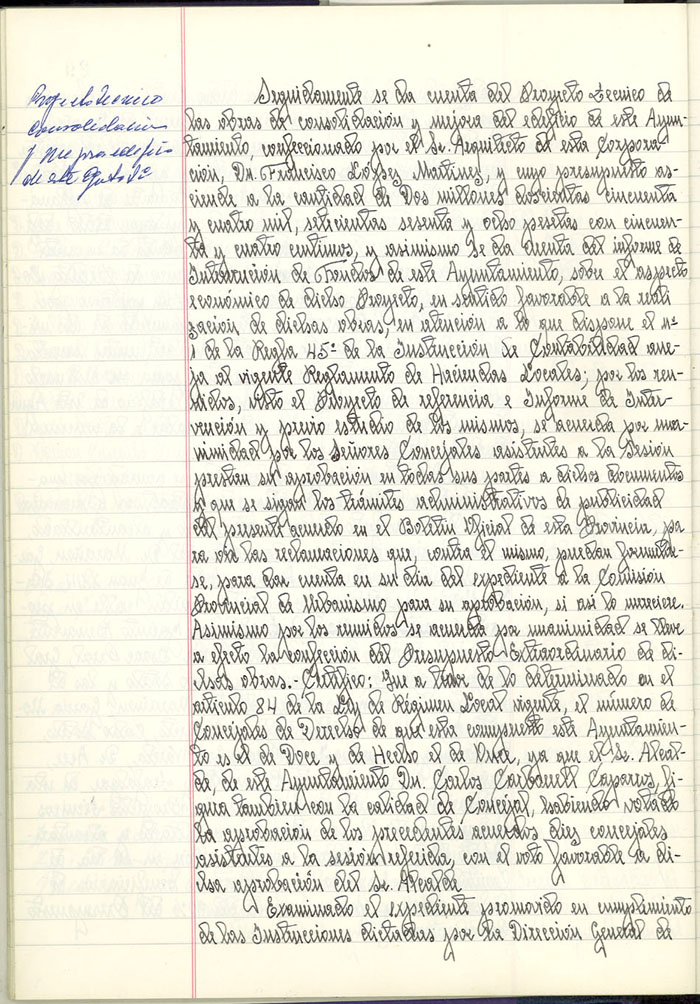 Proyecto técnico
consolidación
y mejora edificio
de este Ayuntº
Seguidamente se da cuenta del Proyecto técnico de
las obras de consolidación y mejora del edificio de este Ayun-
tamiento, confeccionado por el Sr. Arquitecto de esta Corpora-
ción, Dn. Francisco López Martínez, y cuyo presupuesto as-
ciende a la cantidad de Dos millones doscientas cincuenta
y cuatro mil, setecientas sesenta y ocho pesetas con cincuen-
ta y cuatro centimos, y asimismo se da cuenta del informe de
Intervención de Fondos de este Ayuntamiento, sobre el aspecto
económico de dicho Proyecto, en sentido favorable a la reali
zación de dichas obras, en atención a lo que dispone el nº
1 de la Regla 45ª de la Instrucción de Contabilidad ane-
ja al vigente Reglamento de Haciendas Locales; por los reu-
nidos, visto el Proyecto de referencia e Informe de Inter-
vención y previo estudio de los mismos, se acuerda por una-
nimidad por los Señores Concejales asistentes a la Sesión
prestan su aprobación en todas sus partes a dichos documentos
y que se sigan los trámites administrativos de publicidad
del presente acuerdo en el Boletín Oficial de esta Provincia, pa
ra oir las reclamaciones que, contra el mismo, puedan formular-
se, para dar cuenta en su día del expediente a la Comisión
Provincial de Urbanismo para su aprobación, si así lo mereciere.
Asimismo por los reunidos se acuerda por unanimidad se lleve
a efecto la confección del Presupuesto Extraordinario de di-
chas obras.- Certifico: Que a tenor de lo determinado en el
artículo 84 de la Ley de Régimen Local vigente, el número de
Concejales de Derecho de que esta compuesto este Ayuntamien-
to es el de Doce y de Hecho el de Once, ya que el Sr. Alcal-
de, de este Ayuntamiento Dn. Carlos Caparros, fi-
gura tambien con la calidad de Concejal, habiendo votado
la aprobación de los precedentes acuerdos diez concejales
asistentes a la sesión referida, con el voto favorable a di-
cha aprobación del Sr. Alcalde.
Examinado el expediente promovido en cumplimiento
de las Instrucciones dictadas por la Dirección General de